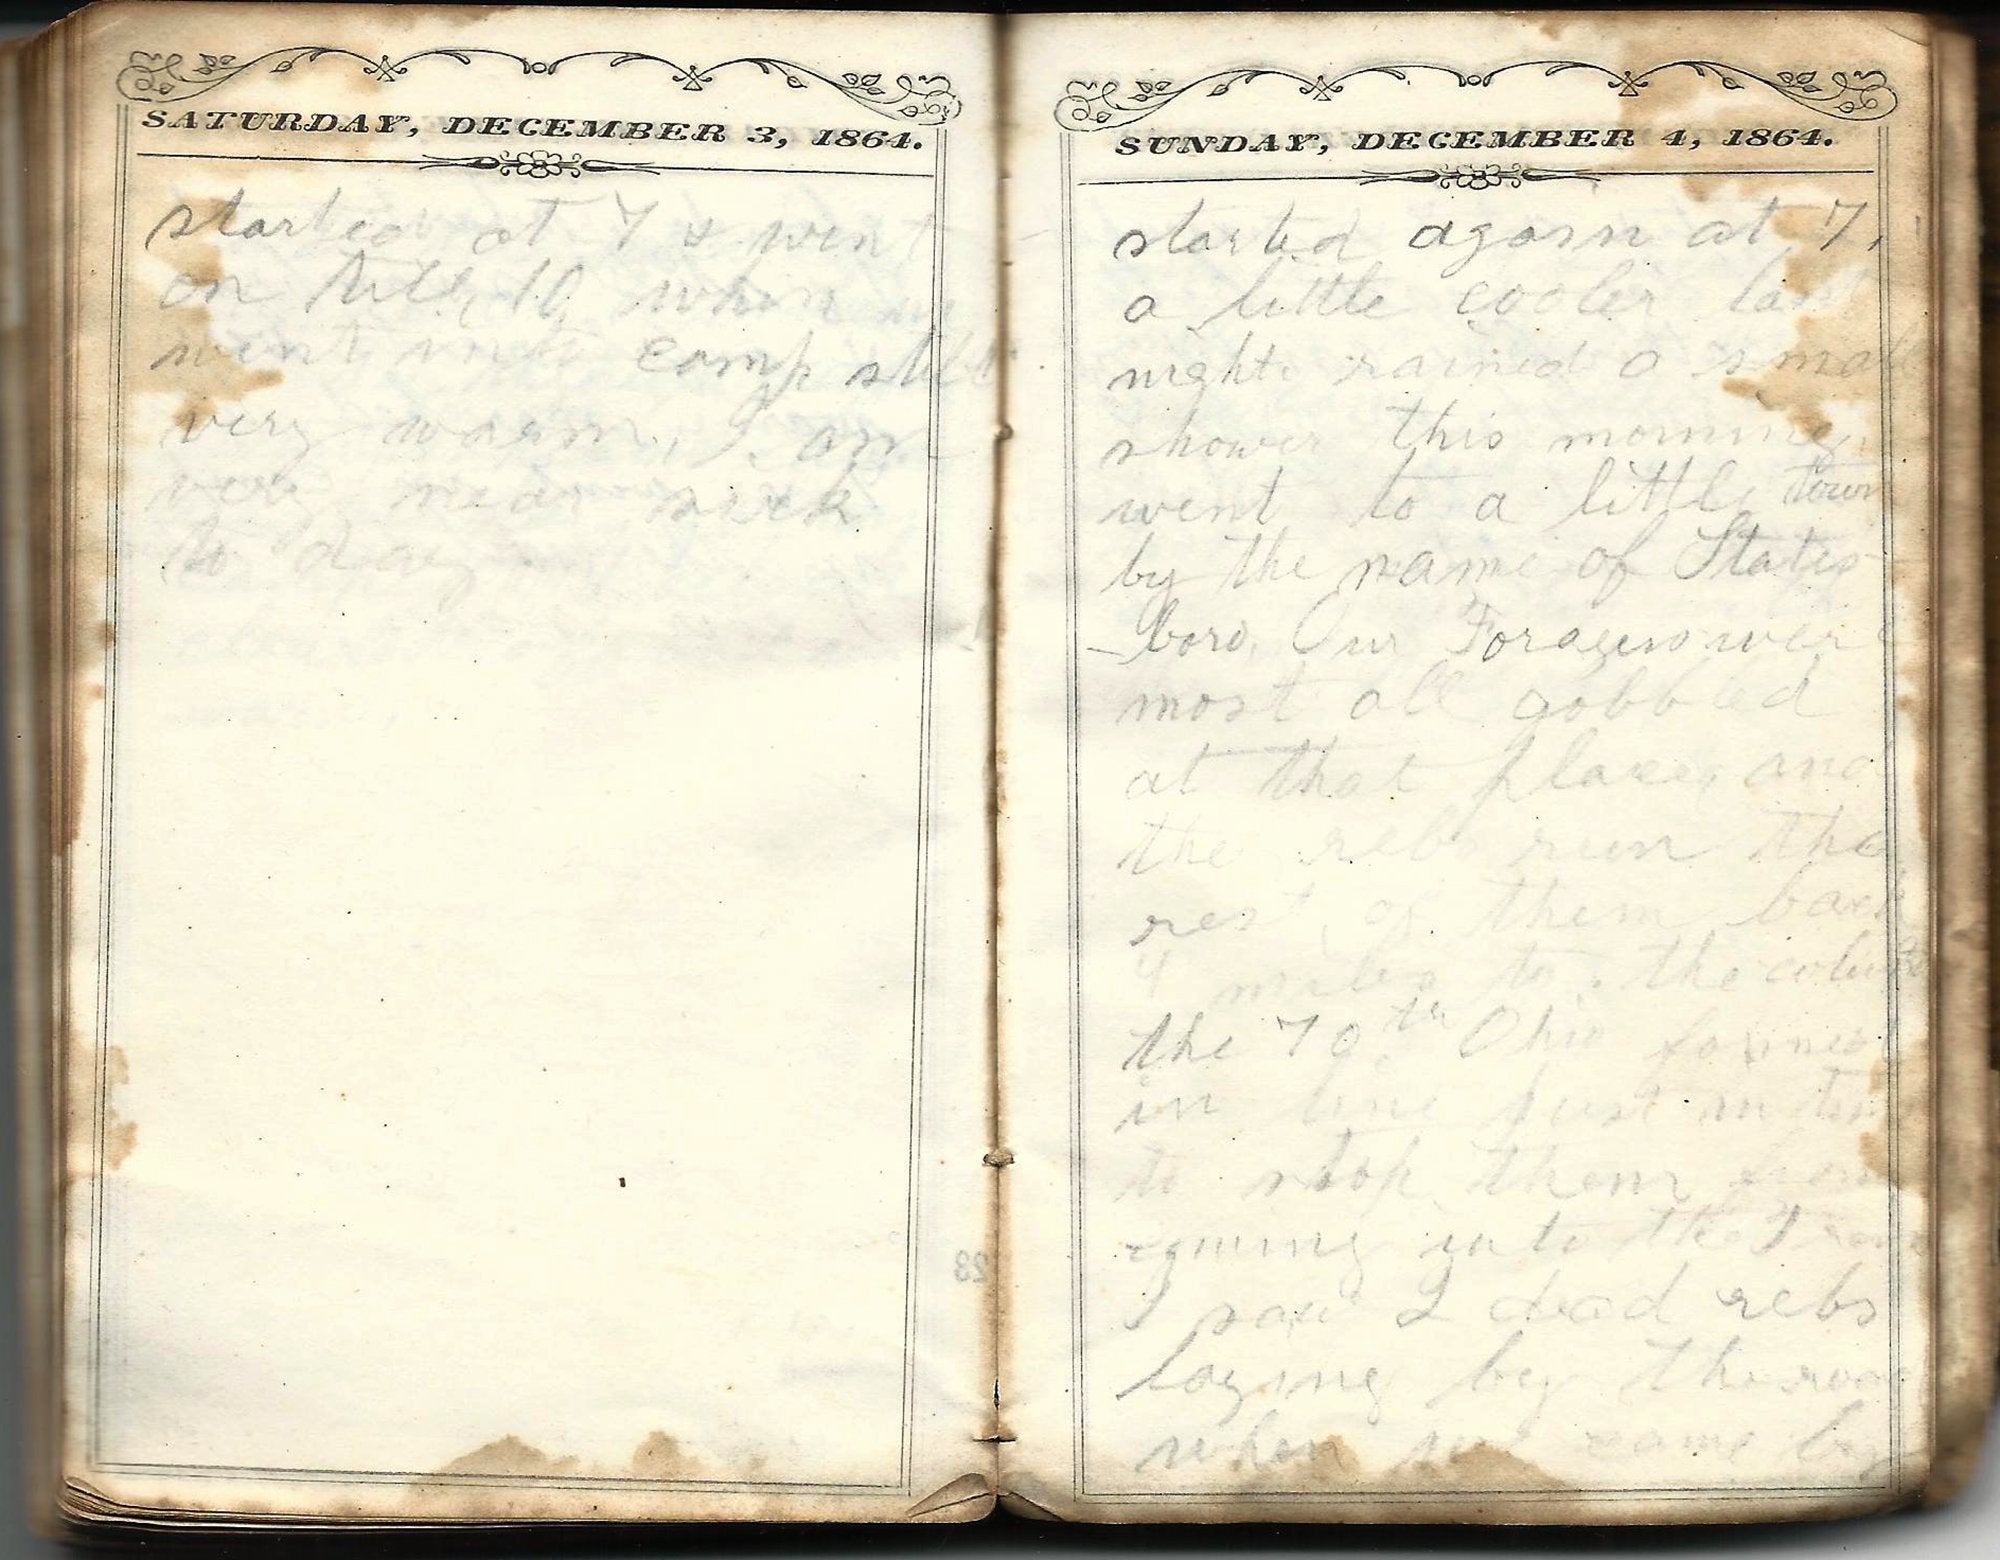 SATURDAY, DECEMBER 3, 1864.
started at 7 & went
on till 10 when we
went into camp still
very warm, I am
very near sick
to day
SUNDAY, DECEMBER 4, 1864.
started again at 7,
a little cooler last
night rained a small
shower this morning,
went to a little town
by the name of States
-boro, Our Foragers were
most all gobbled
at that place, and
the rebs run the
rest of them back
4 miles to the column
the 70th Ohio formed
in line just in time
to stop them from
coming into the Train
I saw 2 dead rebs
laying by the road
when we came by